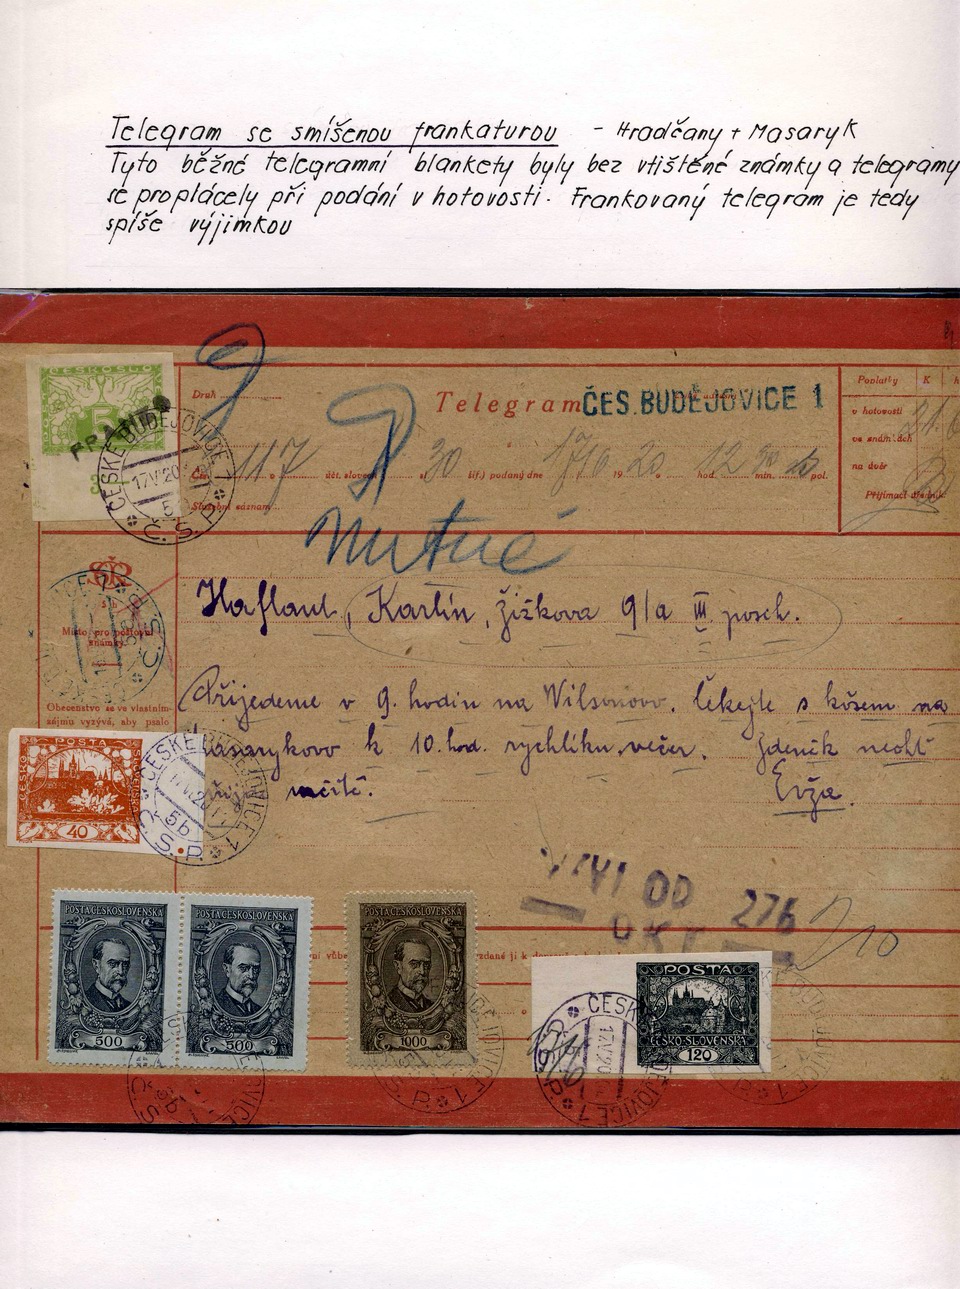 Telegram se smíšenou frankaturou - Hradčany + Masaryk
Tyto běžné telegramní blankety byly bez vtištěné známky a telegramy
se proplácely při podání v hotovosti. Frankovaný telegram je tedy
spíše výjimkou
Druh
Telegram
ČES. BUDĚJOVICE 1
Poplatky K h
v hotovosti
ve známkách
na dvěr
Přijímací úředník
117 účt. slov 30 šif.) podaný dne 17/6 1920 o hod. 12 30 min. pol.
Služební záznam
Nutné
ČESKÉ BUDĚJOVICE 1
17.VI.20
Č.S.P.
ČSR
Místo pro poštovní
známky.
Haflant, Karlín, Žižkova 9/a III posch.
Obecenstvo se ve vlastním
zájmu vyzývá, aby psalo
Přijedeme v 9. hodin na Wilsonovo. Čekejte s kóšem na
Masarykovo k 10. hod. rychlíku večer. Zdeněk
určitě.
Evža.
POSTA
ČESKO SLOVENSKÁ
40
ČESKÉ BUDĚJOVICE 1
5b
Č.S.P.
POSTA ČESKOSLOVENSKÁ
500
POSTA ČESKOSLOVENSKÁ
500
POSTA ČESKOSLOVENSKÁ
1000
POSTA
ČESKO-SLOVENSKÁ
120
276